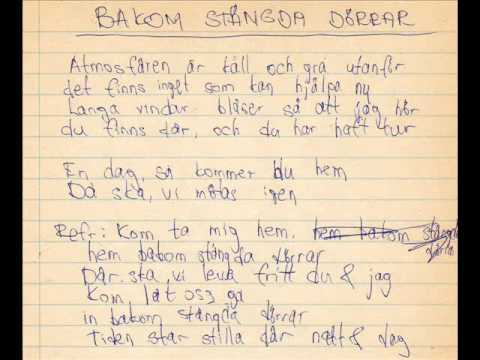 BAKOM STÄNGDA DÖRRAR
Atmosfären är kall och grå utanför
det finns inget som kan hjälpa ny
Långa vindar blåser så att jag hör
du finns där, och du har haft tur
En dag, så kommer du hem
Då ska, vi mötas igen
Refr: Kom ta mig hem. hem bakom stängda dörrar
hem bakom stängda dörrar
Där ska, vi leva fritt du & jag
Kom låt oss gå
in bakom stängda dörrar
Tiden står stilla där natt & dag